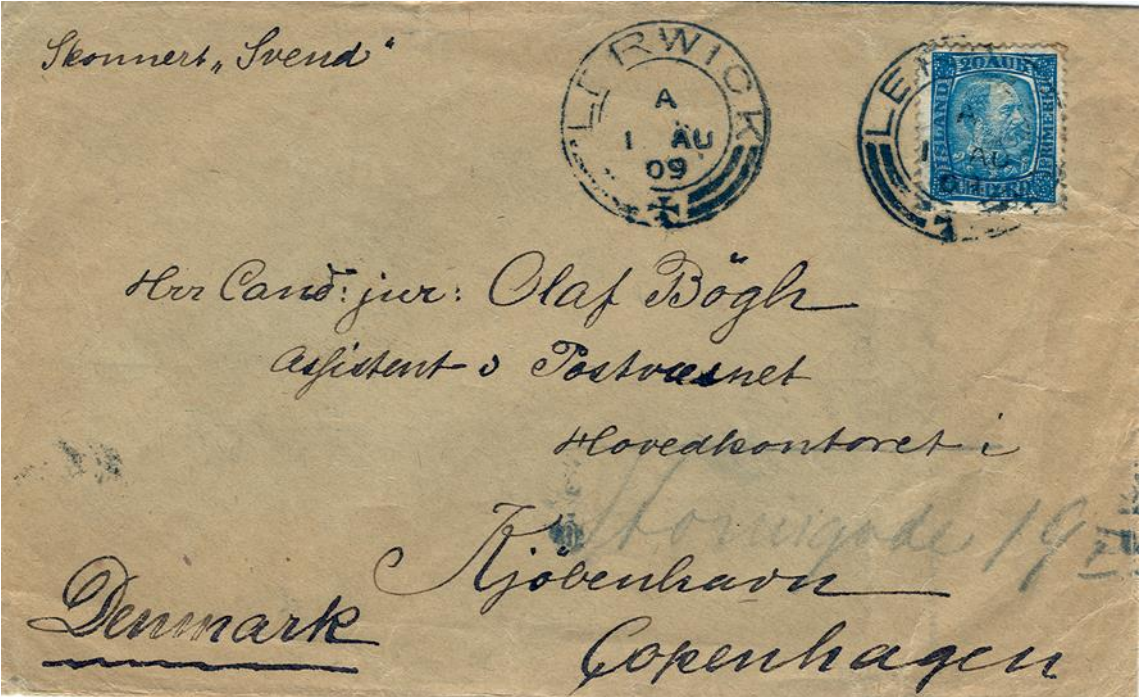 Skonnert „Svend“
LERWICK
A
1 AU
09
LE
A
1 AU
20 AUR
ISLAND
Herr Cand: jur: Olaf Bögh
Assistent i Postvæsnet
Hovedkontoret i
19
Kjöbenhavn
Denmark
Copenhagen